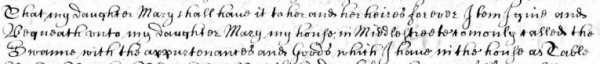 That my daughter Mary shall have it to her and her heires forever Item I give and
Bequeath unto my daughter Mary my house in Middlestreete comonly called the
Swanne with the appurtenances and Goods which I have in the house as Table